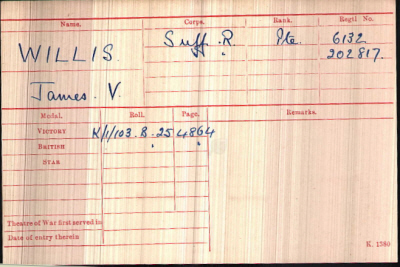 Name. Corps. Rank. Regtl No.
WILLIS. Suff. R. Pte. 6132
" 202817.
James. V.
Medal. Roll. Page. Remarks.
VICTORY K/1/103.B.25 4864
BRITISH " "
STAR
Theatre of War first served in
Date of entry therein
K. 1380